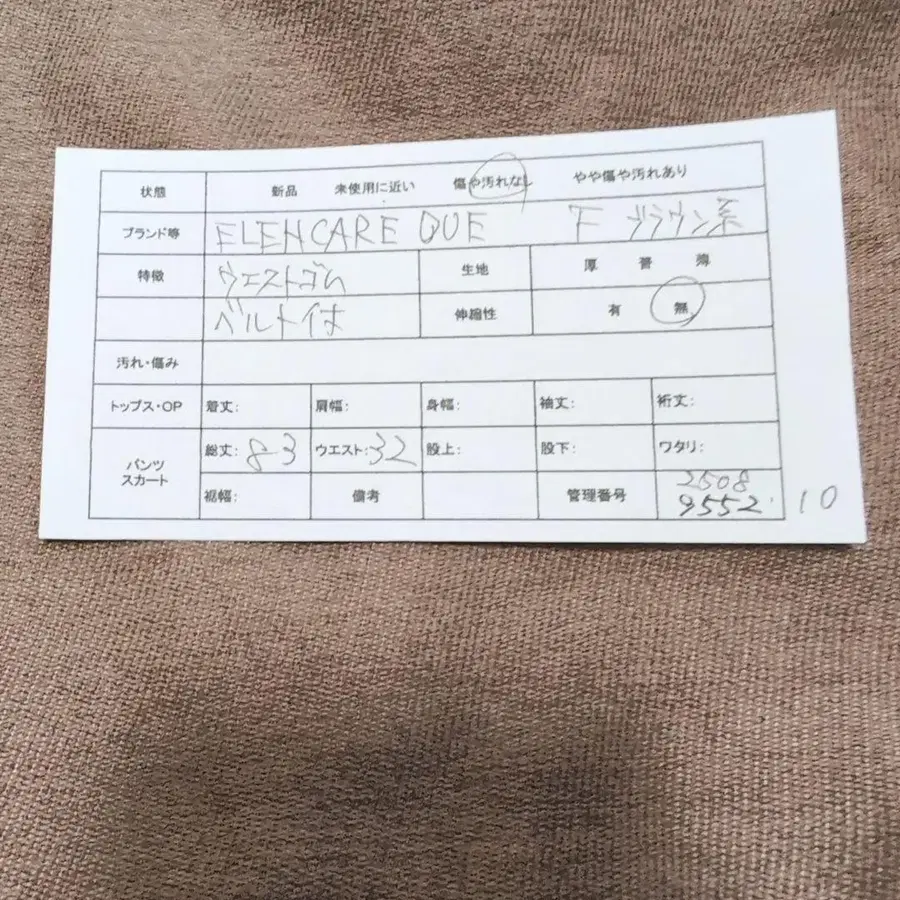 状態 新品 未使用に近い 傷や汚れなし やや傷や汚れあり
ブランド等 ELENCARE QUE F ブラウン系
特徴 ウエストゴム 生地 厚 普 薄
ベルト付 伸縮性 有 無
汚れ・傷み
トップス・OP 着丈: 肩幅: 身幅: 袖丈: 裄丈:
パンツ スカート 総丈: 83 ウエスト: 32 股上: 股下: ワタリ:
裾幅: 備考 管理番号 2508 9552 10